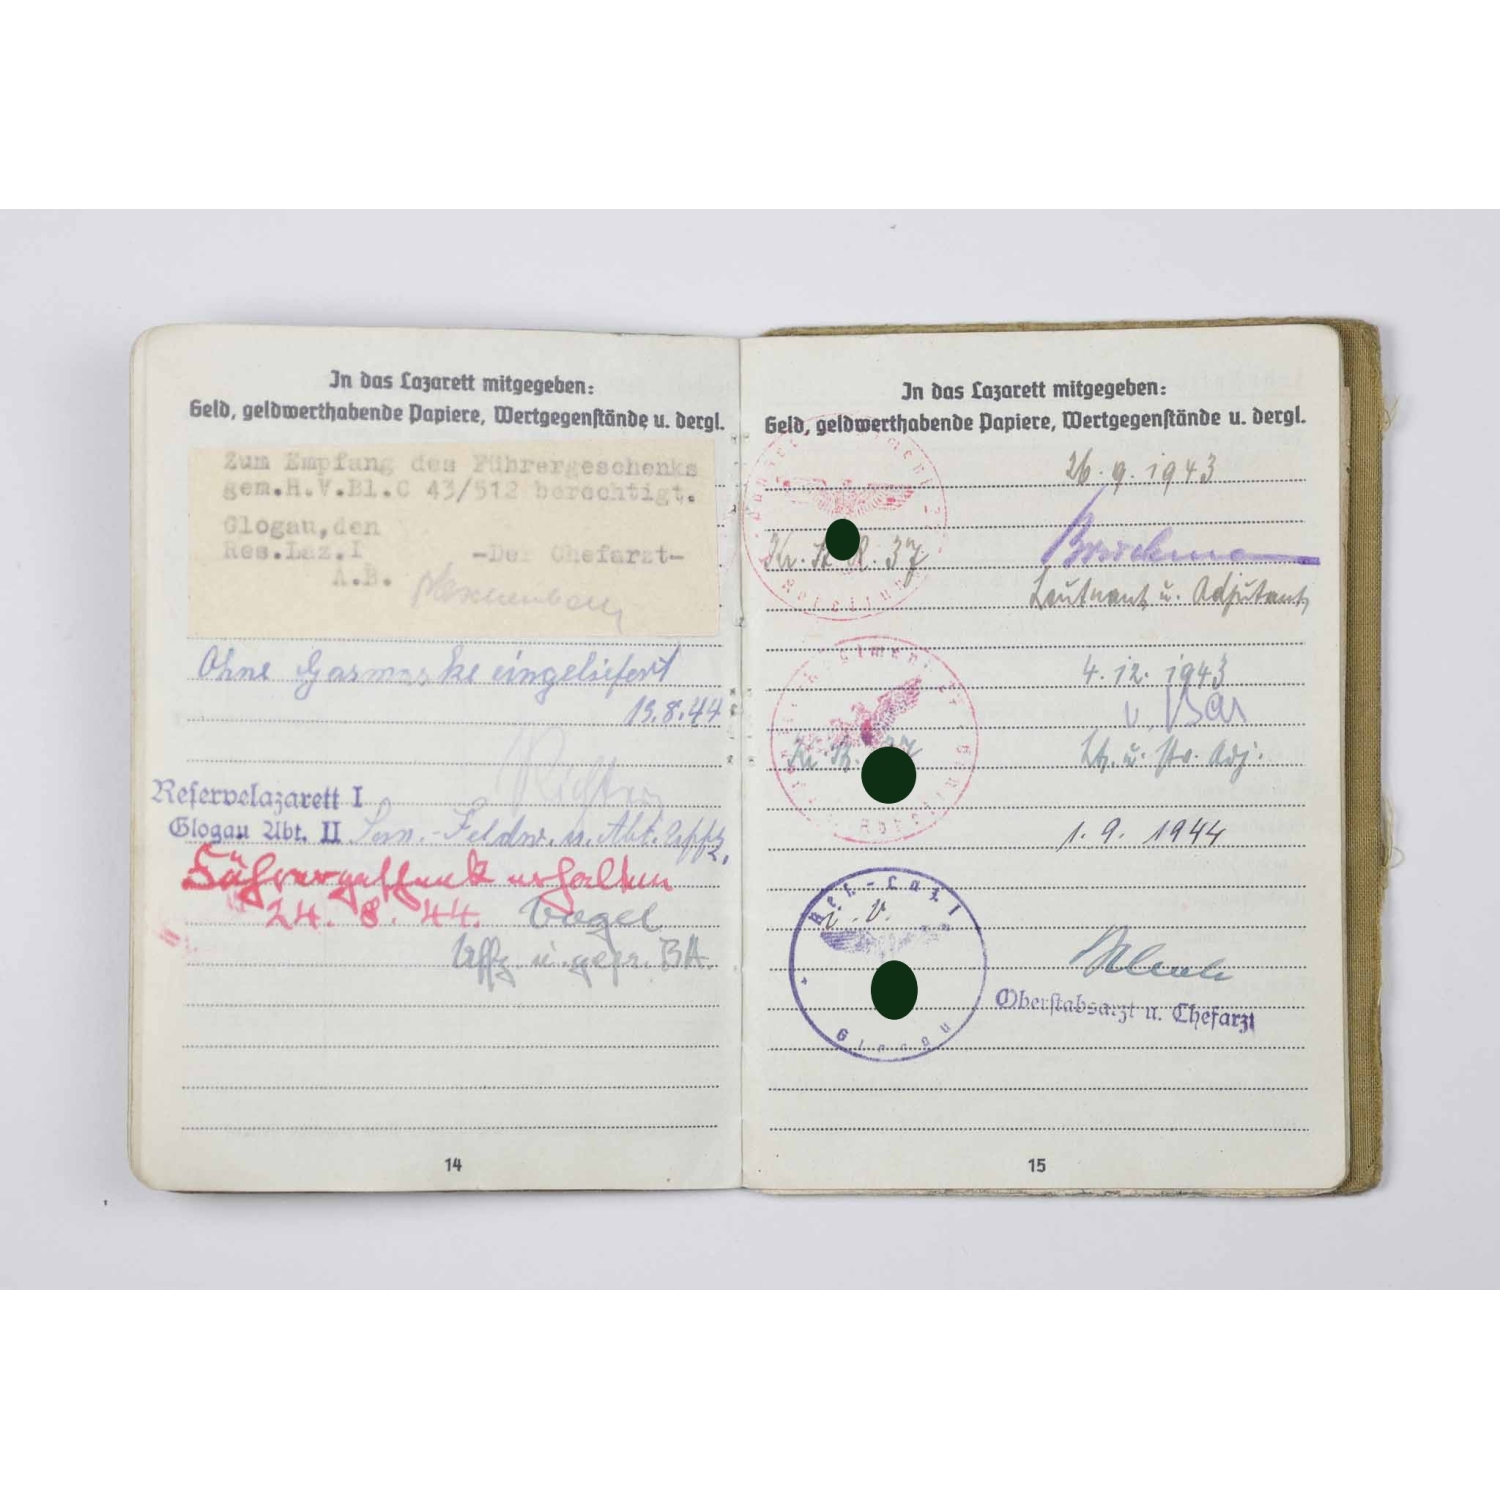 In das Lazarett mitgegeben:
Geld, geldwerthabende Papiere, Wertgegenstände u. dergl.
Zum Empfang des Führergeschenks
gem.H.V.Bl.C 43/512 berechtigt.
Glogau,den
Res.Laz.I -Der Chefarzt-
A.B.
Ohne Gasmaske eingeliefert
13.8.44
Richter
Reservelazarett I
Glogau Abt. II San.-Feldw. u. Abt.
Führergeschenk erhalten
24. 8. 44. Vogel
Uffz. u. gepr. BA.
14
In das Lazarett mitgegeben:
Geld, geldwerthabende Papiere, Wertgegenstände u. dergl.
26. 9. 1943
37
Leutnant u. Adjutant
4. 12. 1943
v. Bar
37 Lt. u. stv. Adj.
1. 9. 1944
Res.-Laz. I
i. V.
Oberstabsarzt u. Chefarzt
Glogau
15